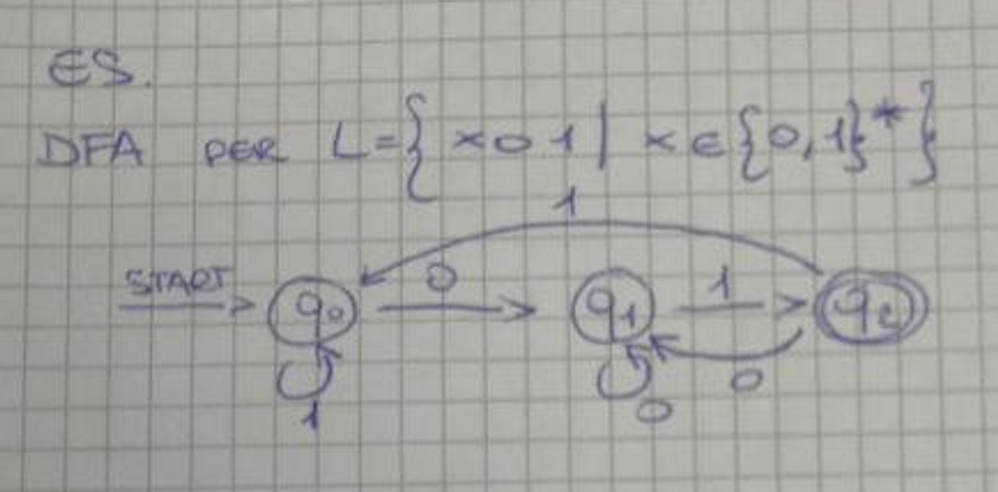 ES.
DFA PER L={x01 | x∈{0,1}*}
1
START 0 1
q₀ q₁ q₂
1 0 0